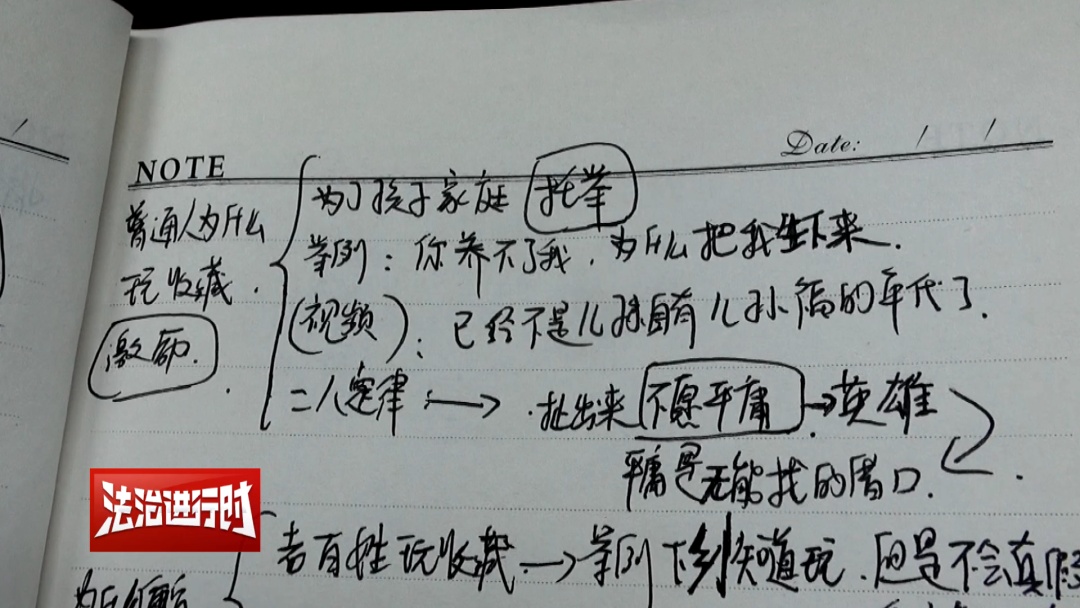 NOTE
Date: / /
普通人为什么
玩收藏.
激励.
为了孩子家庭 托举
举例：你养不了我，为什么把我生下来.
（视频）：已经不是儿孙自有儿孙福的年代了.
二八定律 → 扯出来 不愿平庸 → 英雄
平庸是无能找的借口.
法治进行时
老百姓玩收藏 → 举例 下乡知道玩，但是不会真假